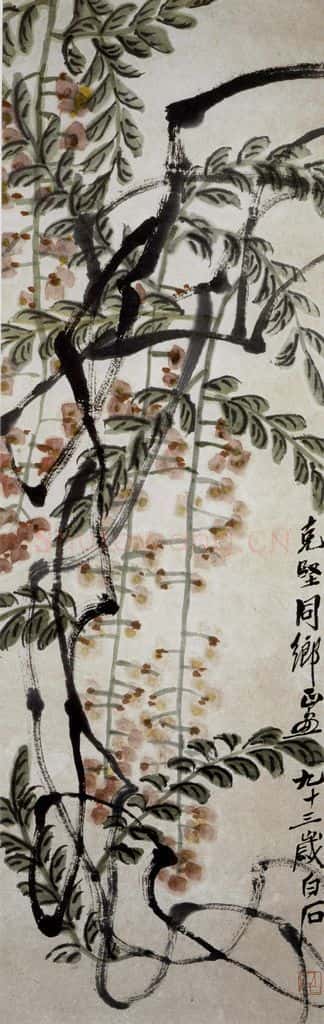 克堅同鄉正畫九十三歲白石